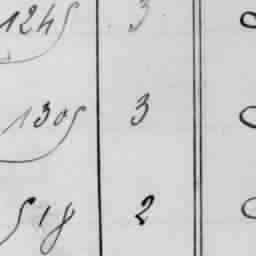 1245 3
1305 3
518 2